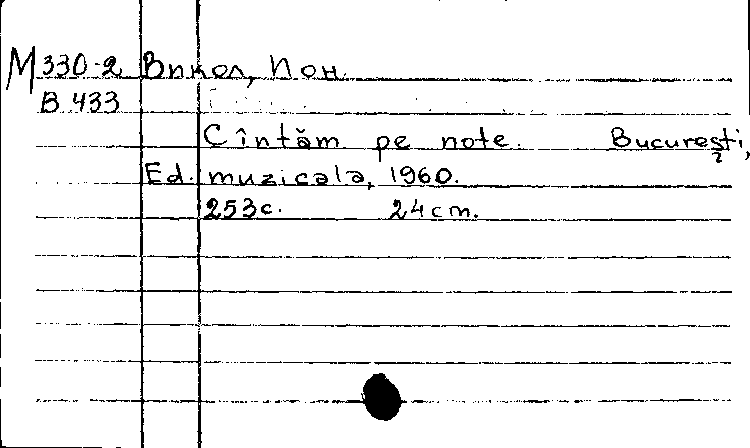 М 330-2 Викол, Ион.
В 433
Cîntăm pe note. București,
Ed. muzicala, 1960.
253с. 24 cm.